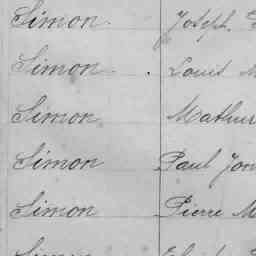 Simon. Joseph
Simon. Louis M
Simon. Mathur
Simon Paul Jon
Simon Pierre M
Simon